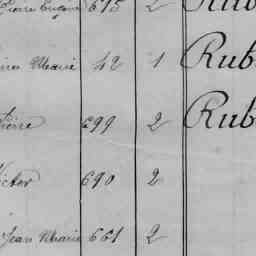 Pierre Eugène 615 2 Rub
Marie 42 1 Rub
Pierre 699 2 Rub
Victor 690 2
Jean Marie 661 2